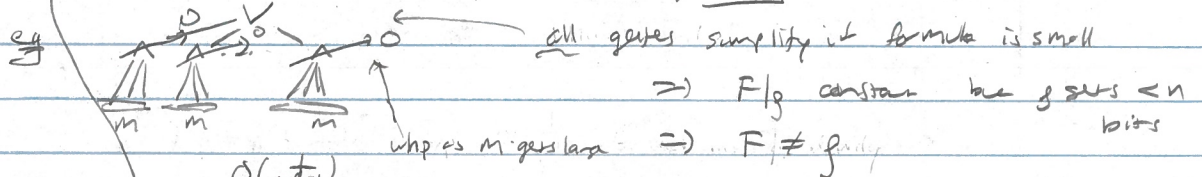 eg V 0 0 → 0 all gates simplify if formula is small
=> F|ρ constant but ρ sets < n
m m m bits
whp as m gets large => F ≠